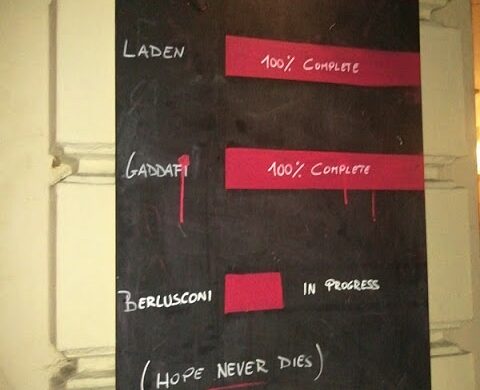 LADEN 100% COMPLETE
GADDAFI 100% COMPLETE
BERLUSCONI IN PROGRESS
(HOPE NEVER DIES)